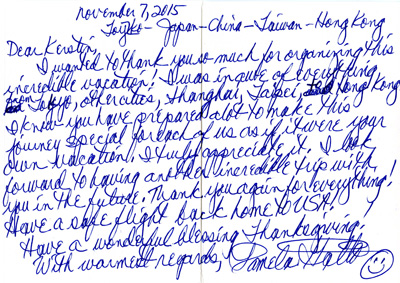 november 7, 2015
Toyko - Japan - China - Taiwan - Hong Kong
Dear Kerstin,
I wanted to thank you so much for organizing this
incredible vacation! I was in awe of everything
from Tokyo, other cities, Shanghai, Taipei, Hong Kong
I know you have prepared alot to make this
journey special for each of us as if it were your
own vacation. I truly appreciate it. I look
forward to having another incredible trip with
you in the future. Thank you again for everything!
Have a safe flight back home to USA!
Have a wonderful blessing Thanksgiving!
With warmest regards, Pamela